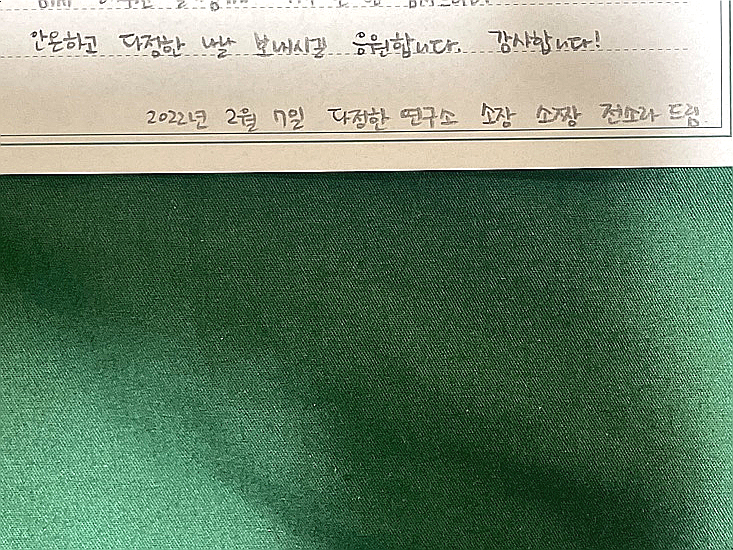 안온하고 다정한 날날 보내시길 응원합니다. 감사합니다!
2022년 2월 7일 다정한 연구소 소장 소짱 전소라 드림